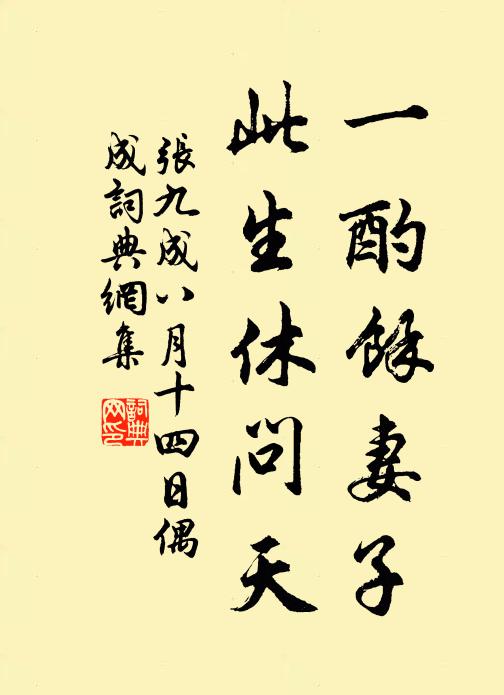 一酌餘妻子
此生休問天
張九成八月十四日偶
成詞典網集
詞典
网印